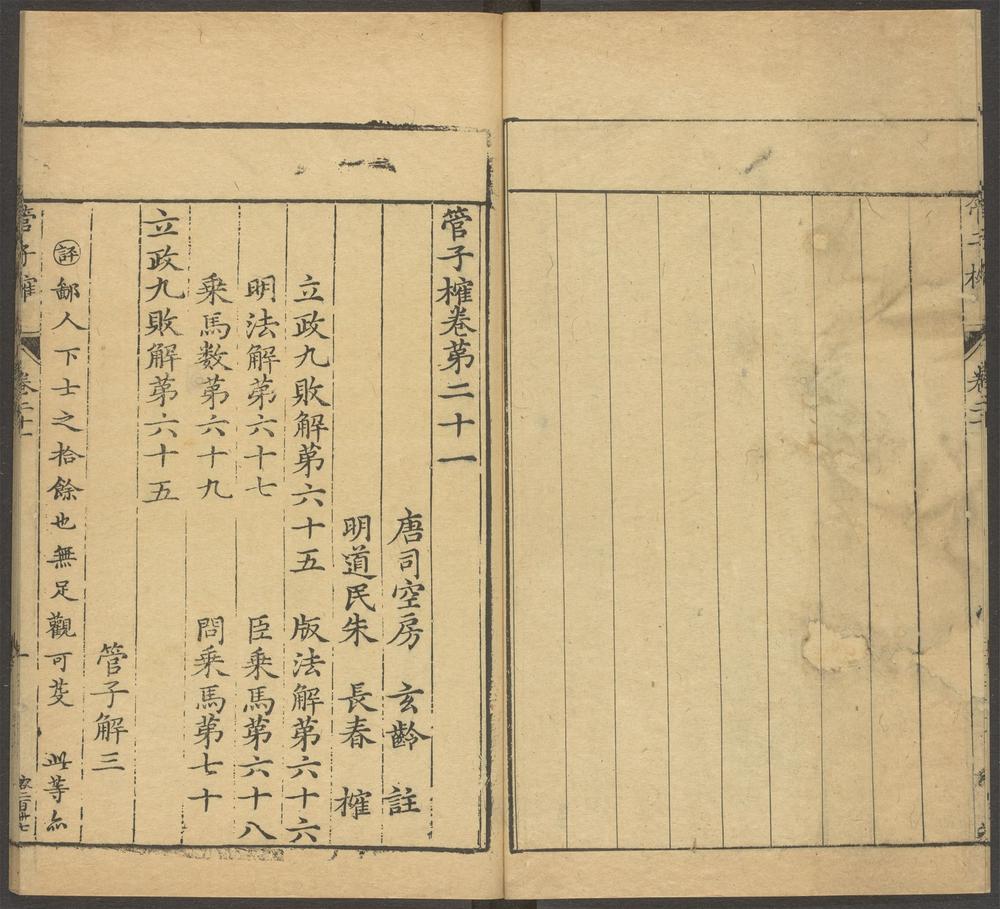 管子榷卷第二十一
唐司空房 玄齡 註
明道民朱 長春 榷
立政九敗解第六十五 版法解第六十六
明法解第六十七 臣乗馬第六十八
乗馬数第六十九 問乗馬第七十
立政九敗解第六十五
管子解三
評鄙人下士之拾餘也無足觀可芟 此等亦
管子榷 卷二十一 一